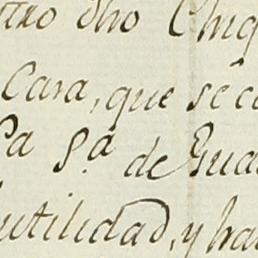 dho Chiq
Cara, que se c
Pa S.ª de Gua
utilidad, y ha